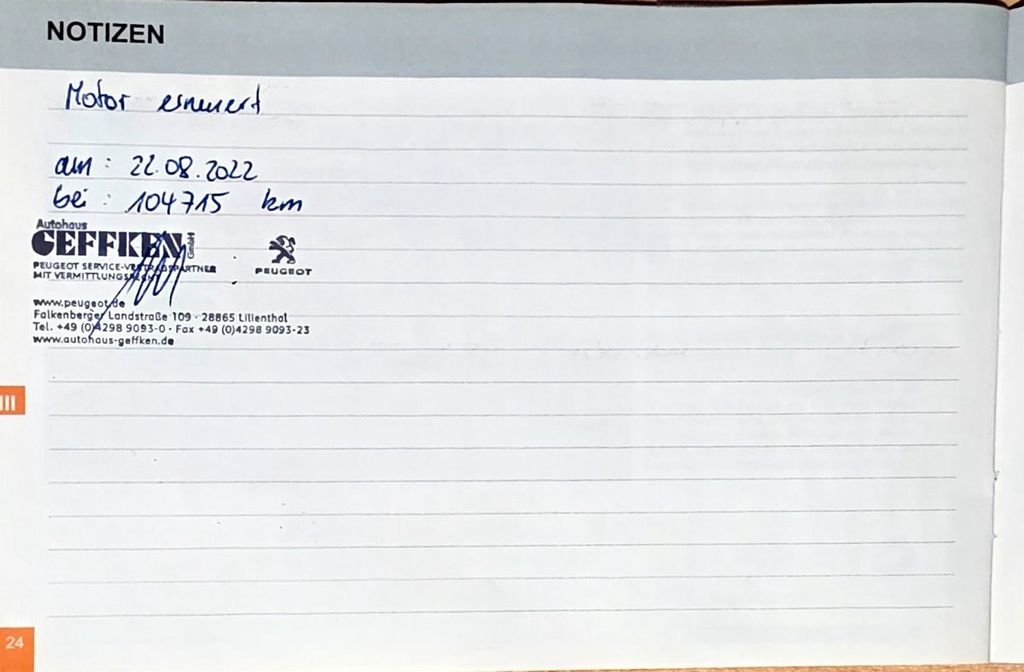 NOTIZEN
Motor erneuert
am : 22.08.2022
bei : 104715 km
Autohaus
GEFFKEN GmbH
PEUGEOT SERVICE-VERTRAGSPARTNER
MIT VERMITTLUNGSRECHT
PEUGEOT
www.peugeot.de
Falkenberger Landstraße 109 · 28865 Lilienthal
Tel. +49 (0)4298 9093-0 · Fax +49 (0)4298 9093-23
www.autohaus-geffken.de
III
24